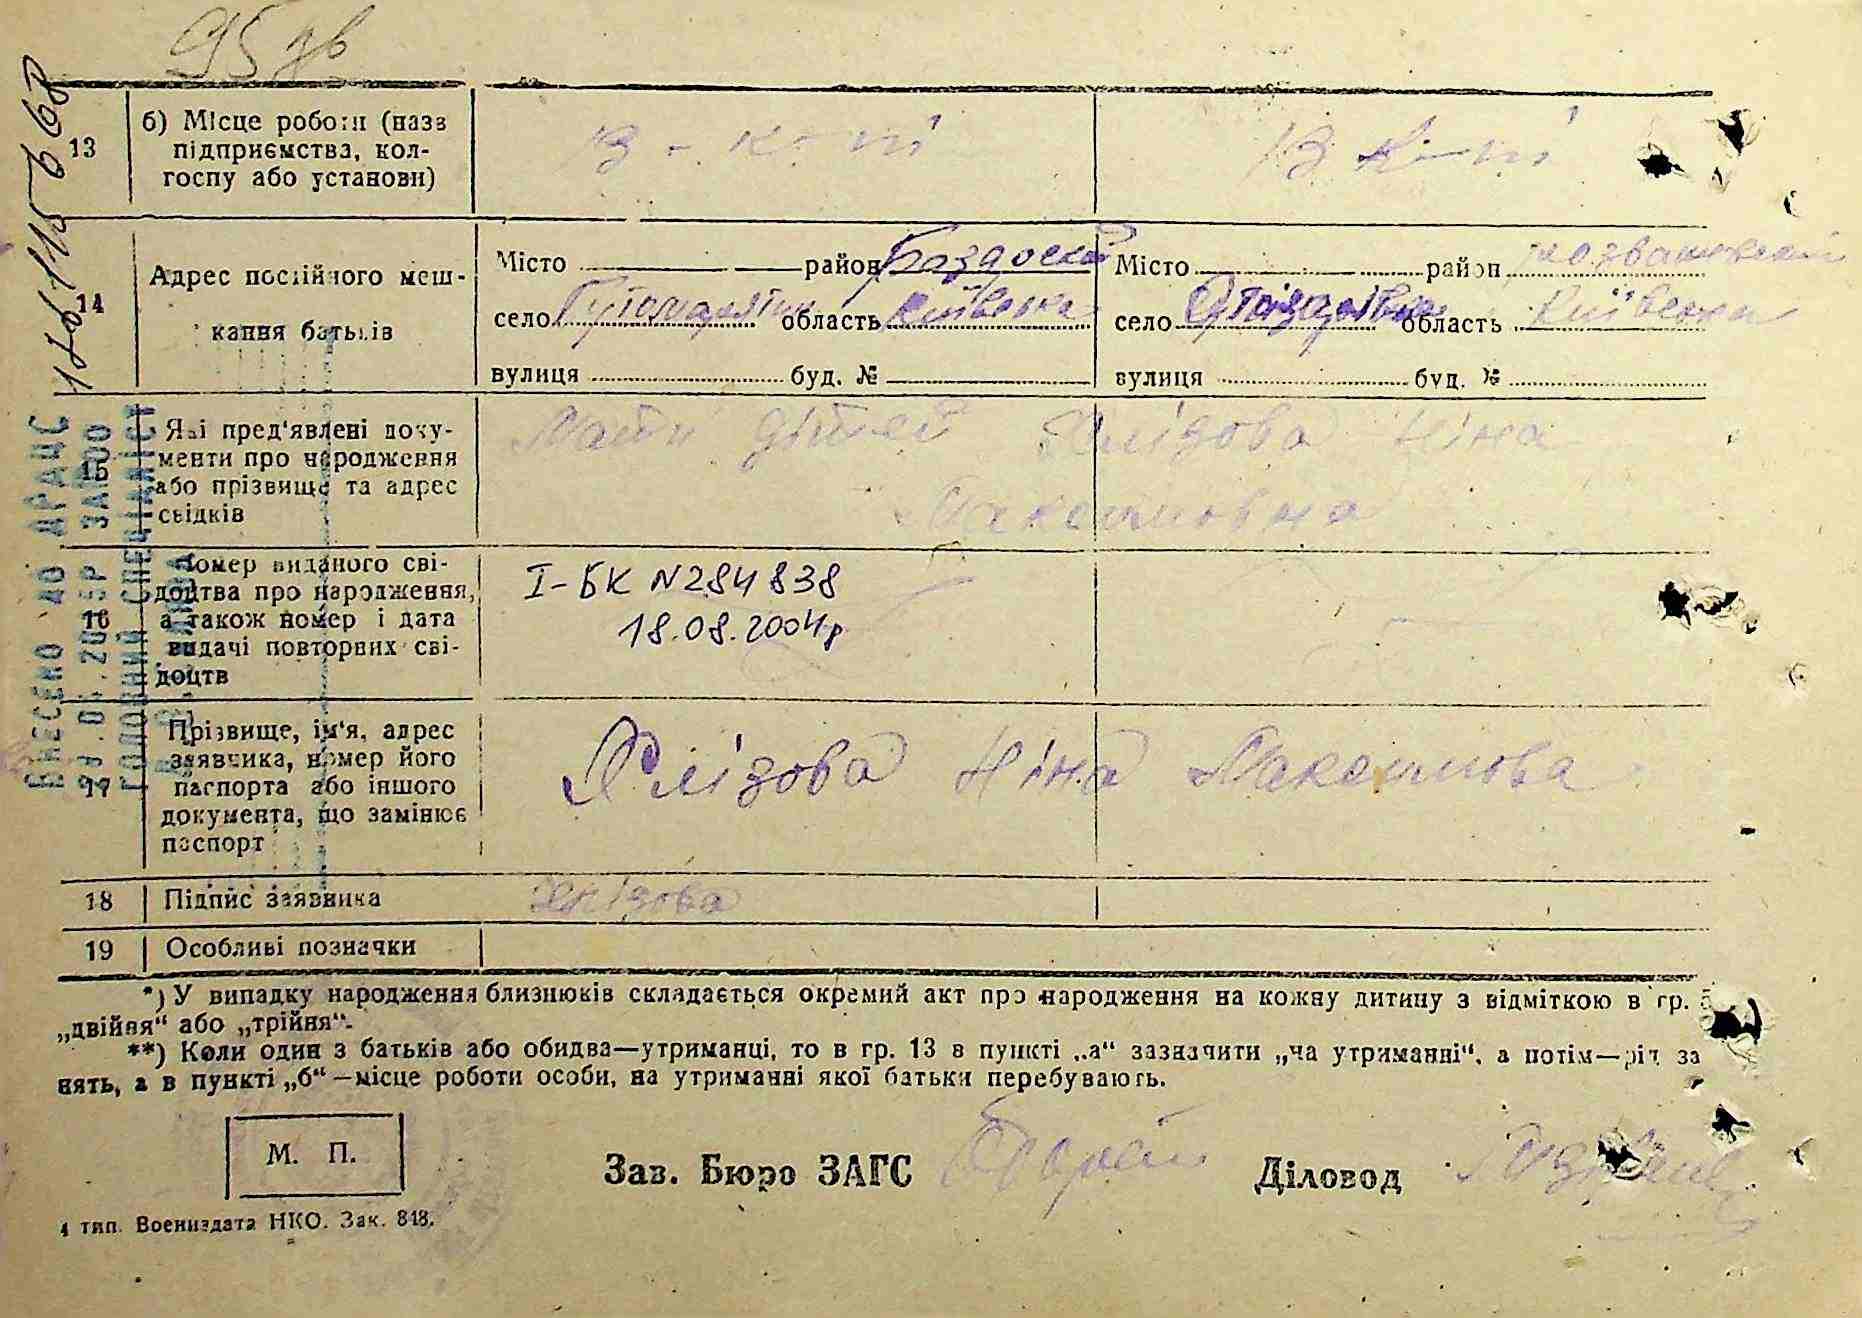 95 зв
13
б) Місце роботи (назв
підприємства, кол-
госпу або установи)
в - к-ті
в к-ті
14
Адрес постійного меш-
кання батьків
Місто район
село область Київська
вулиця буд. №
Місто район
село область Київська
вулиця буд. №
15
Які пред'явлені доку-
менти про народження
або прізвище та адрес
свідків
Мати дітей Хлізова Ніна
Максимовна
16
Номер виданого сві-
доцтва про народження,
а також номер і дата
видачі повторних сві-
доцтв
I-БК N284838
18.08.2004р
17
Прізвище, ім'я, адрес
заявника, номер його
паспорта або іншого
документа, що замінює
паспорт
Хлізова Ніна Максимова
18
Підпис заявника
Хлізова
19
Особливі позначки
*) У випадку народження близнюків складається окремий акт про народження на кожну дитину з відміткою в гр. 5
„двійня“ або „трійня“.
**) Коли один з батьків або обидва—утриманці, то в гр. 13 в пункті „а“ зазначити „на утриманні“, а потім—рід за
нять, а в пункті „б“ —місце роботи особи, на утриманні якої батьки перебувають.
М. П.
Зав. Бюро ЗАГС
Діловод
4 тип. Воениздата НКО. Зак. 848.
ВНЕСЕНО ДО ДРАЦС
ГОЛОВНИЙ СПЕЦІАЛІСТ